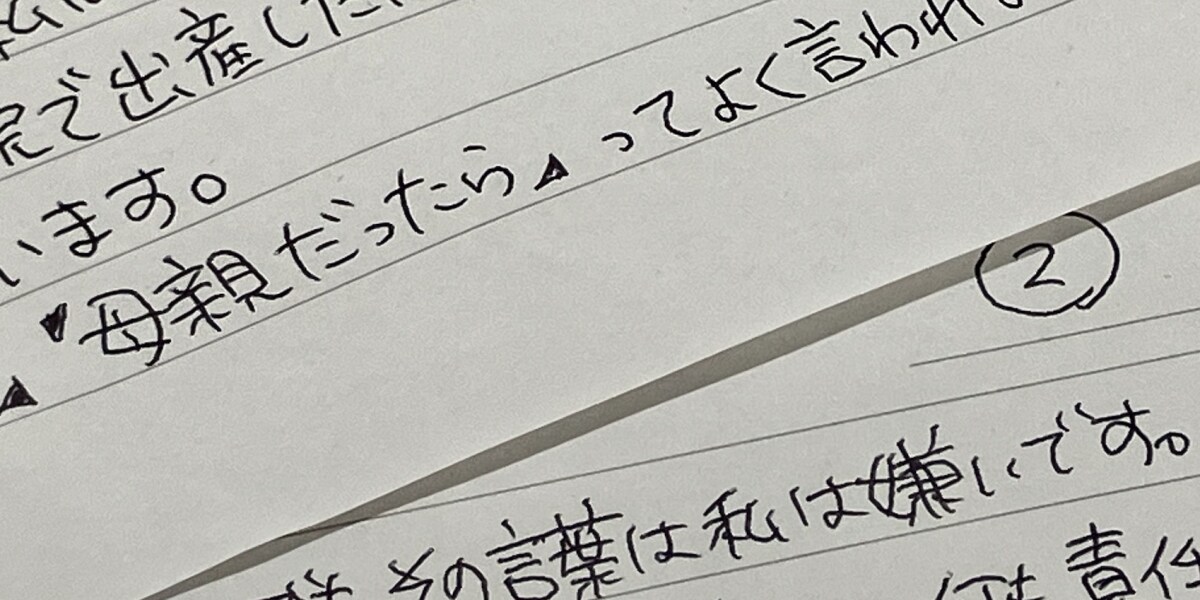 で出産した
います。
"母親だったら▲ってよく言われ
▲
②
その言葉は私は嫌いです。
責任